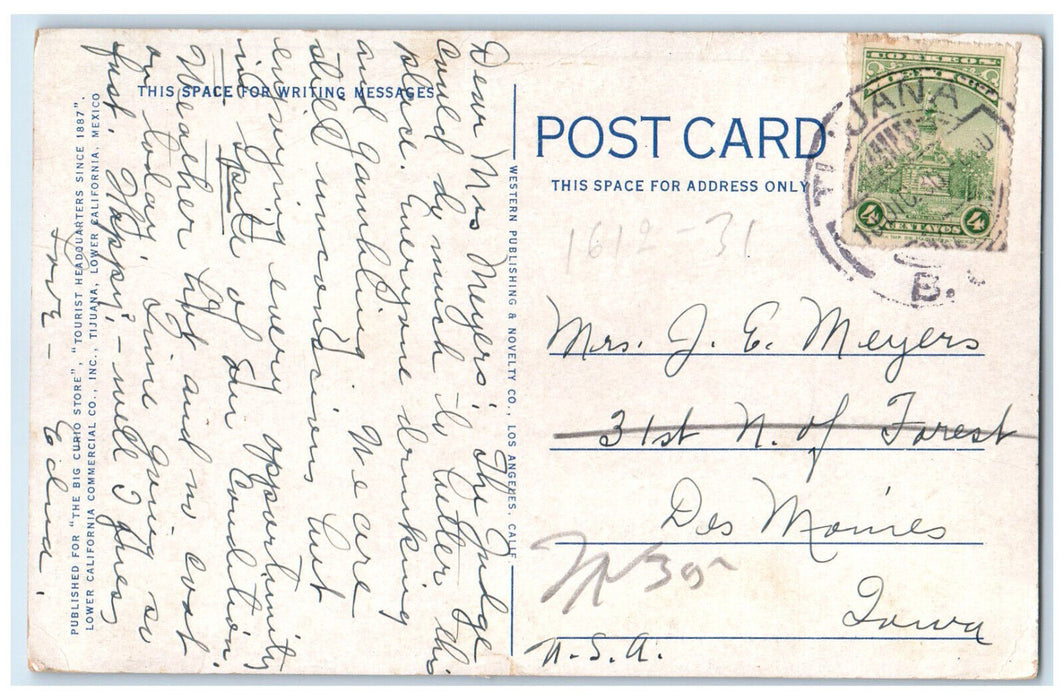 THIS SPACE FOR WRITING MESSAGES
POST CARD
THIS SPACE FOR ADDRESS ONLY
TIJUANA
B.
4 CENTAVOS 4
1612-31
Mrs. J. E. Meyers
31st N. of Forest
Des Moines
Iowa
U.S.A.
Dear Mrs Meyers; The Judge
could do much to better this
place. Everyone drinking
and gambling. We are
still unconscious but
enjoying every opportunity
in spite of our Condition.
Weather Hot and no coat
on today. Time going so
fast. Happy, - well I guess
Love -
Edna.
WESTERN PUBLISHING & NOVELTY CO., LOS ANGELES, CALIF.
PUBLISHED FOR "THE BIG CURIO STORE", "TOURIST HEADQUARTERS SINCE 1887".
LOWER CALIFORNIA COMMERCIAL CO., INC., TIJUANA, LOWER CALIFORNIA, MEXICO